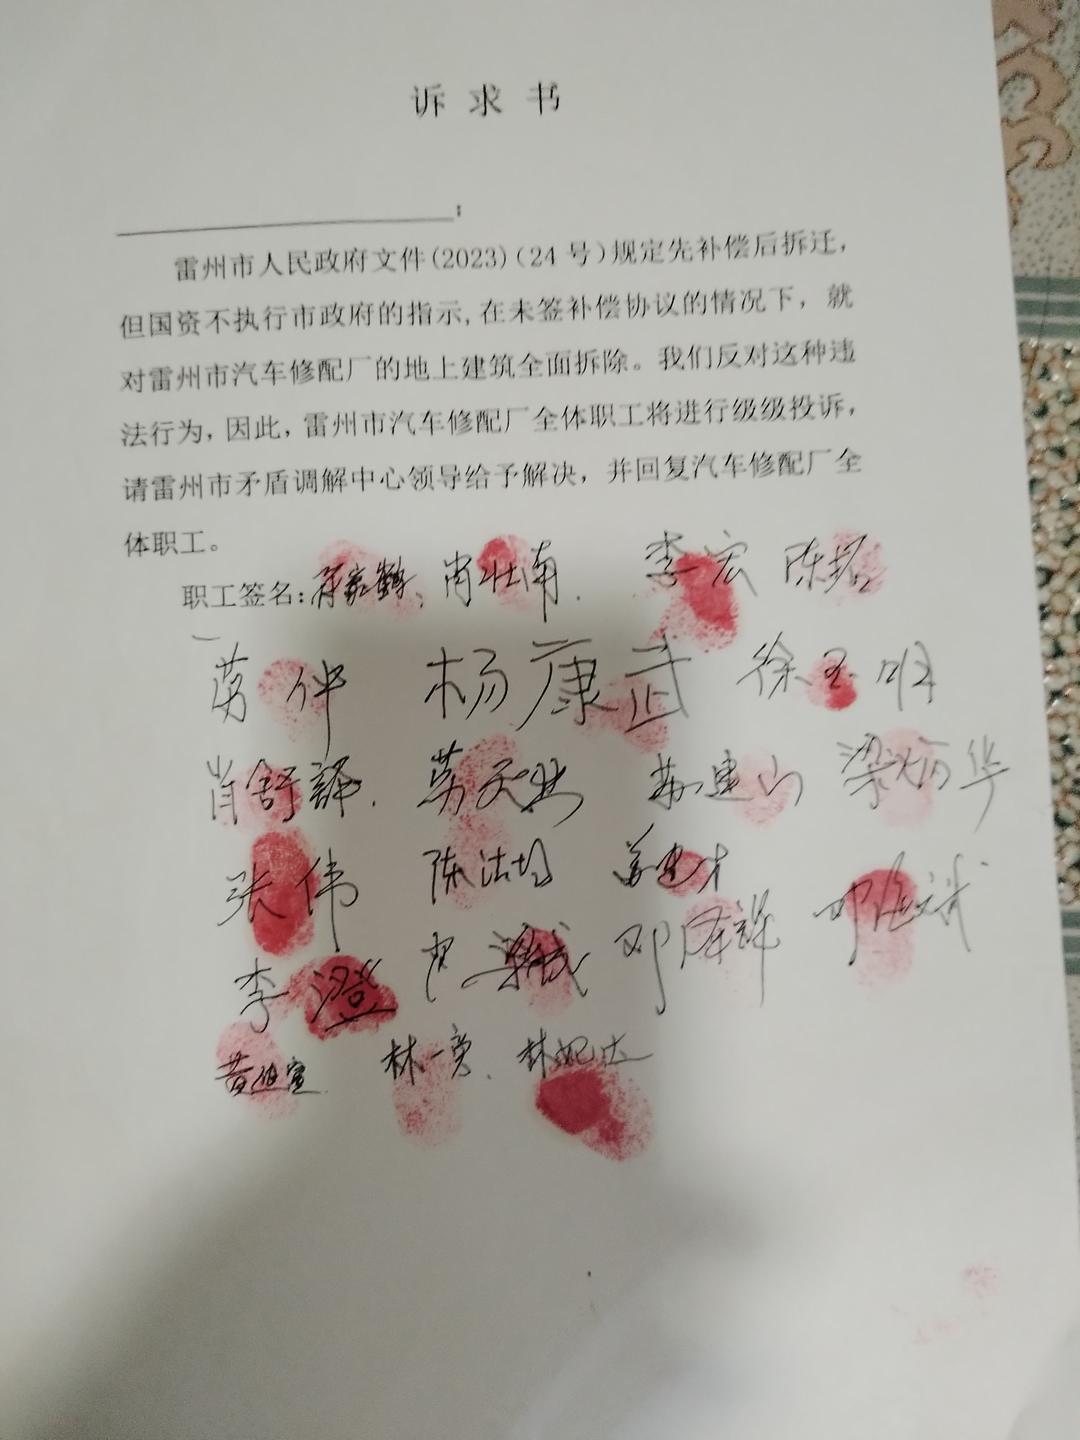 诉求书
：
雷州市人民政府文件(2023)(24号)规定先补偿后拆迁，
但国资不执行市政府的指示,在未签补偿协议的情况下，就
对雷州市汽车修配厂的地上建筑全面拆除。我们反对这种违
法行为，因此，雷州市汽车修配厂全体职工将进行级级投诉，
请雷州市矛盾调解中心领导给予解决，并回复汽车修配厂全
体职工。
职工签名：肖壮南 李宏
杨康武 徐玉明
肖舒譯 苏建山 梁炳华
张伟
李澄
林一